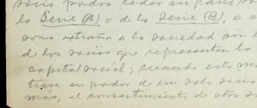 socio podrá ceder su parte
la Serie (A) o de la Serie (B), a a
sona extraña a la sociedad sin l
de los socios qe representen la
capital social; cuando esta me
tiese en poder de un solo socio
más, el consentimiento de otro s